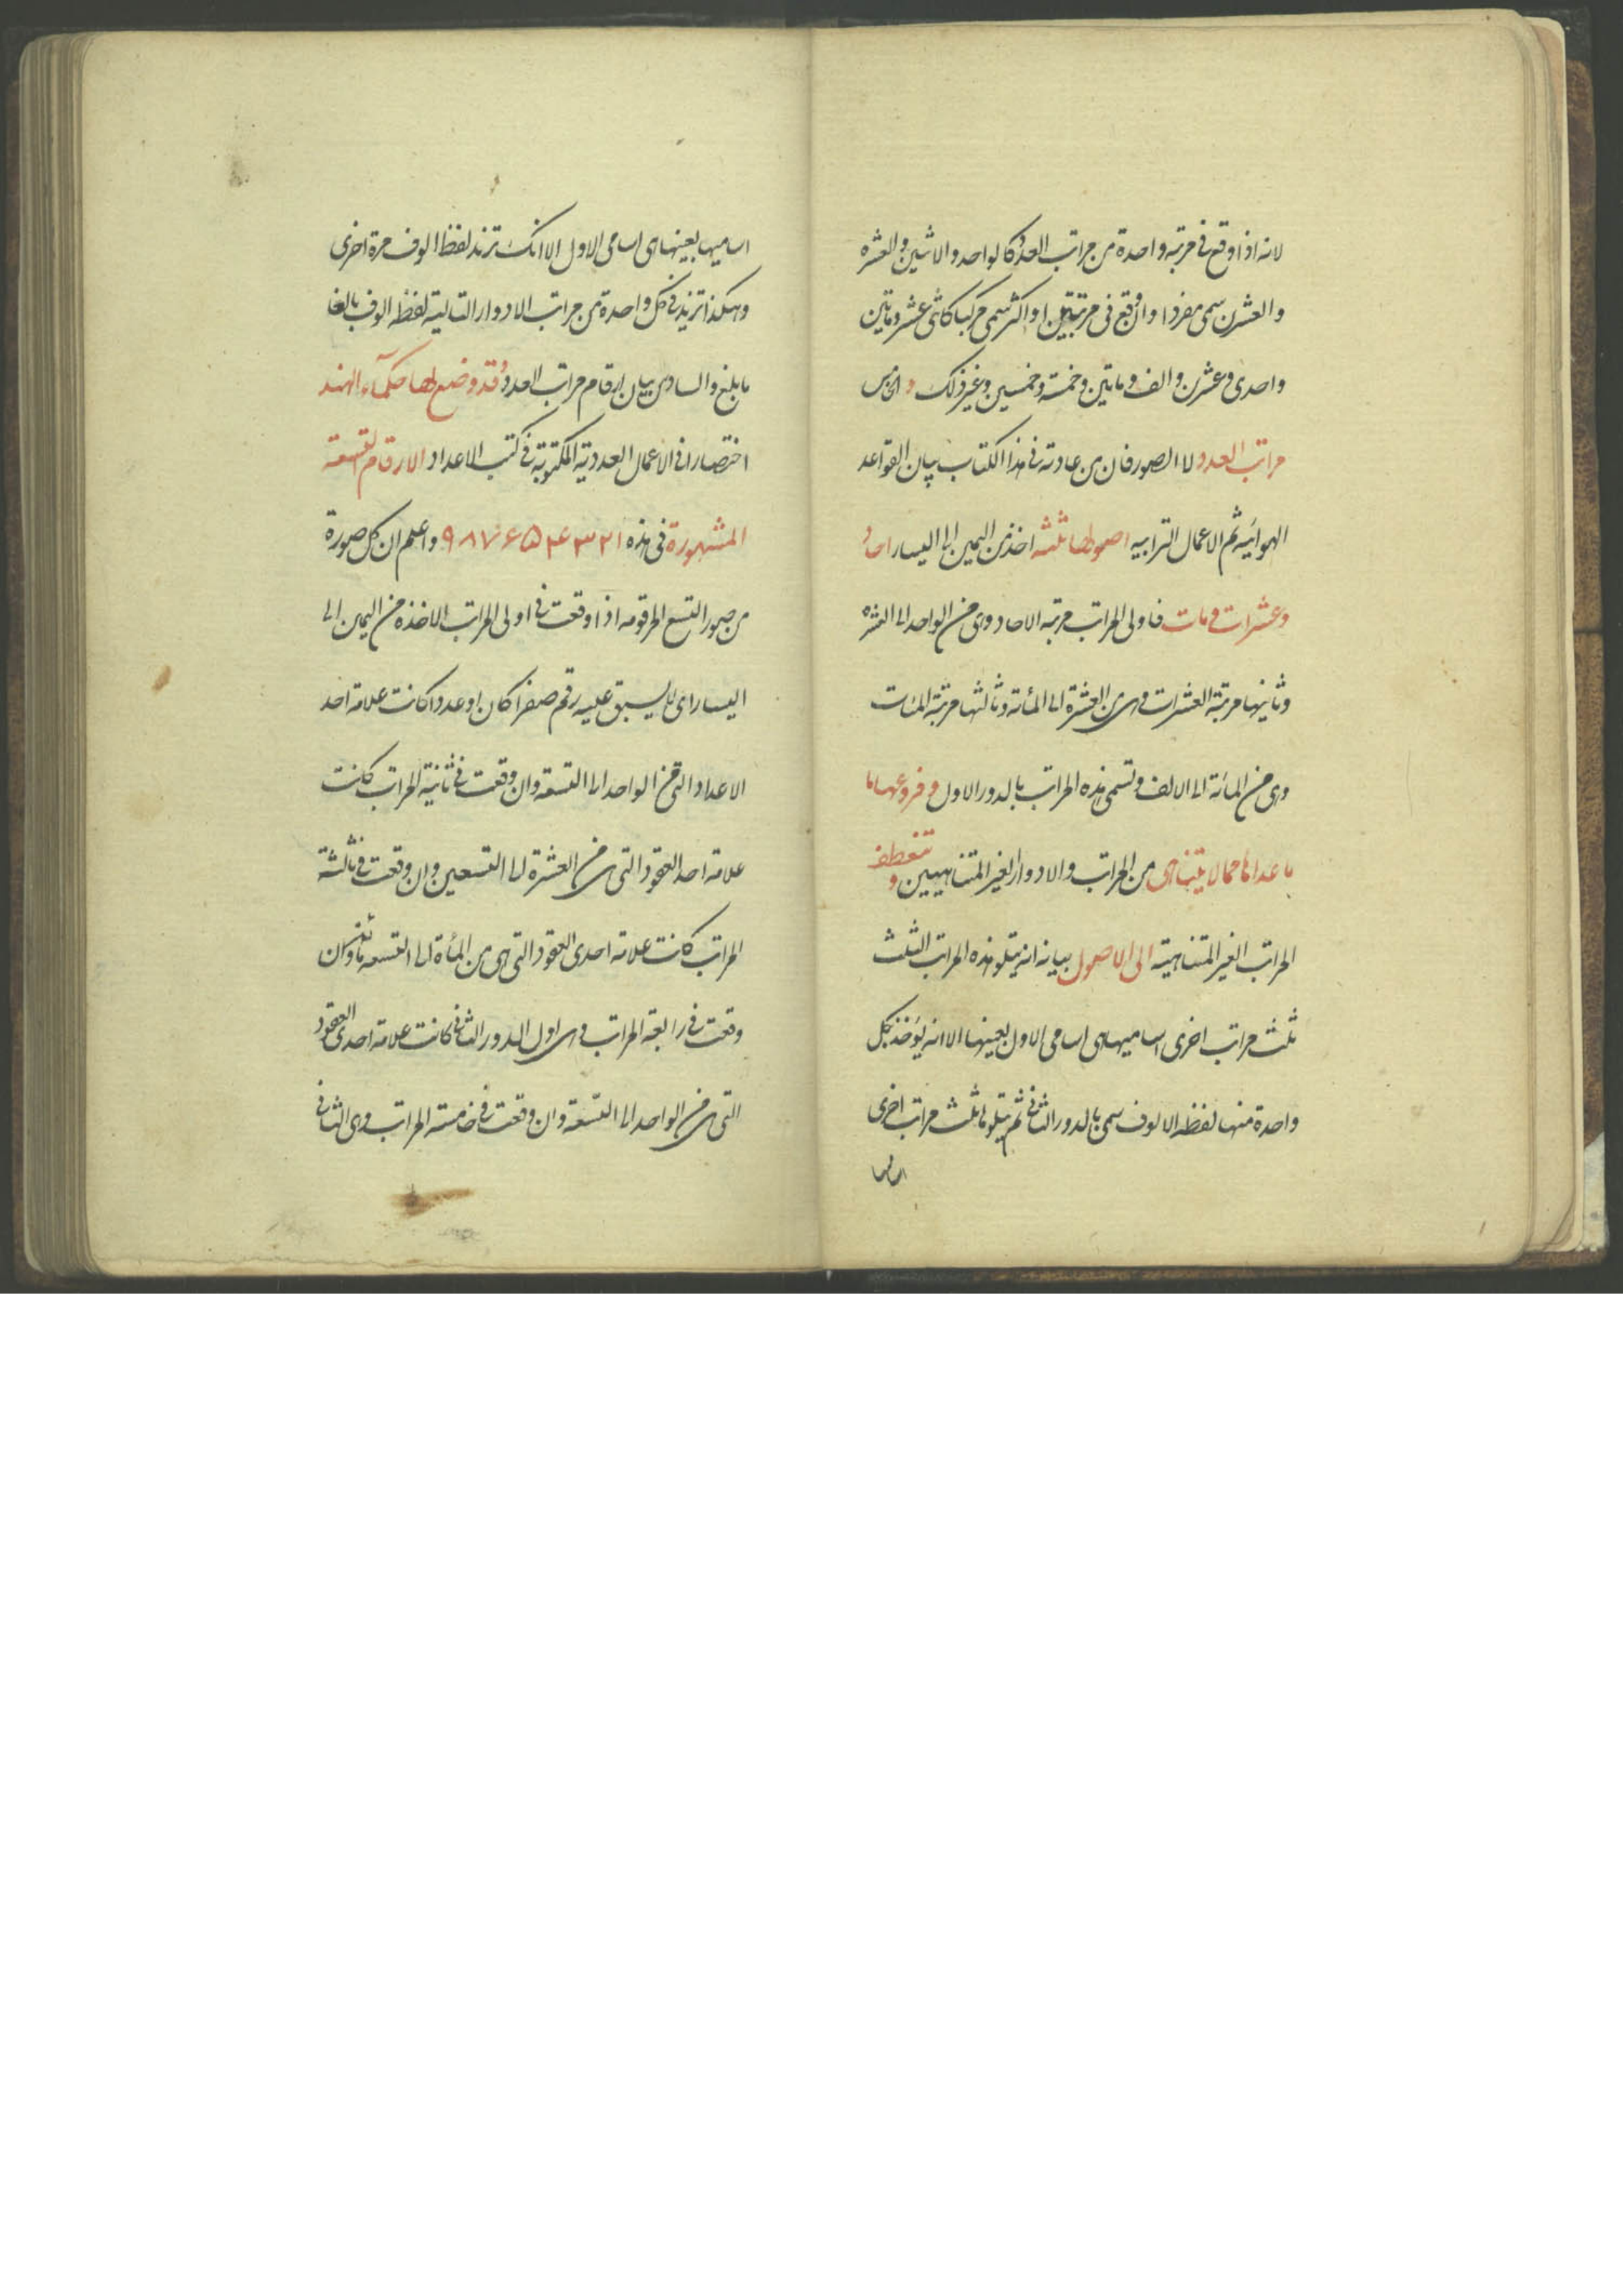 لانه اذا وقع فى مرتبة واحدة من مراتب العدد كالواحد والاثنين والعشره
والعشرين سمى مفردا وان وقع فى مرتبتين او اكثر سمى مركبا كاثنى عشر ومأتين
واحدى وعشرين والف ومأتين وخمسة وخمسين وغير ذلك والخامس
مراتب العدد لا الصور فان من عادته فى هذا الكتاب بيان القواعد
الهوائيه ثم الاعمال الترابيه اصولها ثلثه اخذ من اليمين الى اليسار احاد
وعشرات ومات فاولى المراتب مرتبه الاحاد وهى من الواحد الى العشره
وثانيها مرتبة العشرات وهى من العشرة الى المائة وثالثها مرتبة المئات
وهى من المائة الى الالف وتسمى هذه المراتب بالدور الاول وفروعها ما
ما عداها مما لا يتناهى من المراتب والادوار الغير المتناهيين و تنعطف
المراتب الغير المتناهية الى الاصول بيانه انه يتلو هذه المراتب الثلث
ثلث مراتب اخرى اساميها هى اسامى الاول بعينها الا انه يؤخذ بكل
واحدة منها لفظ الالوف سمى بالدور الثانى ثم يتلوها ثلث مراتب اخرى
اساميها بعينها هى اسامى الاول الا انك تزيد لفظ الوف مرة اخرى
وهكذا تزيد فى كل واحدة من مراتب الادوار التالية لفظ الوف بالغا
ما بلغ والسادس بيان ارقام مراتب العدد وقد وضع لها حكماء الهند
اختصارا فى الاعمال العددية المكتوبة فى كتب الاعداد الارقام التسعة
المشهورة فى هذه ۱ ۲ ۳ ۴ ۵ ۶ ۷ ۸ ۹ واعلم ان كل صورة
من صور التسع المرقومه اذا وقعت فى اولى المراتب الاخذة من اليمين الى
اليسار اى لا يسبق عليه رقم صفرا كان او عددا كانت علامة احد
الاعداد التى من الواحد الى التسعة وان وقعت فى ثانية المراتب كانت
علامة احد العقود التى من العشرة الى التسعين وان وقعت فى ثالثة
المراتب كانت علامة احدى العقود التى هى من المأة الى التسعمائة وان
وقعت فى رابعة المراتب وهى اول الدور الثانى كانت علامة احدى العقود
التى من الواحد الى التسعة وان وقعت فى خامسة المراتب وهى الثانى